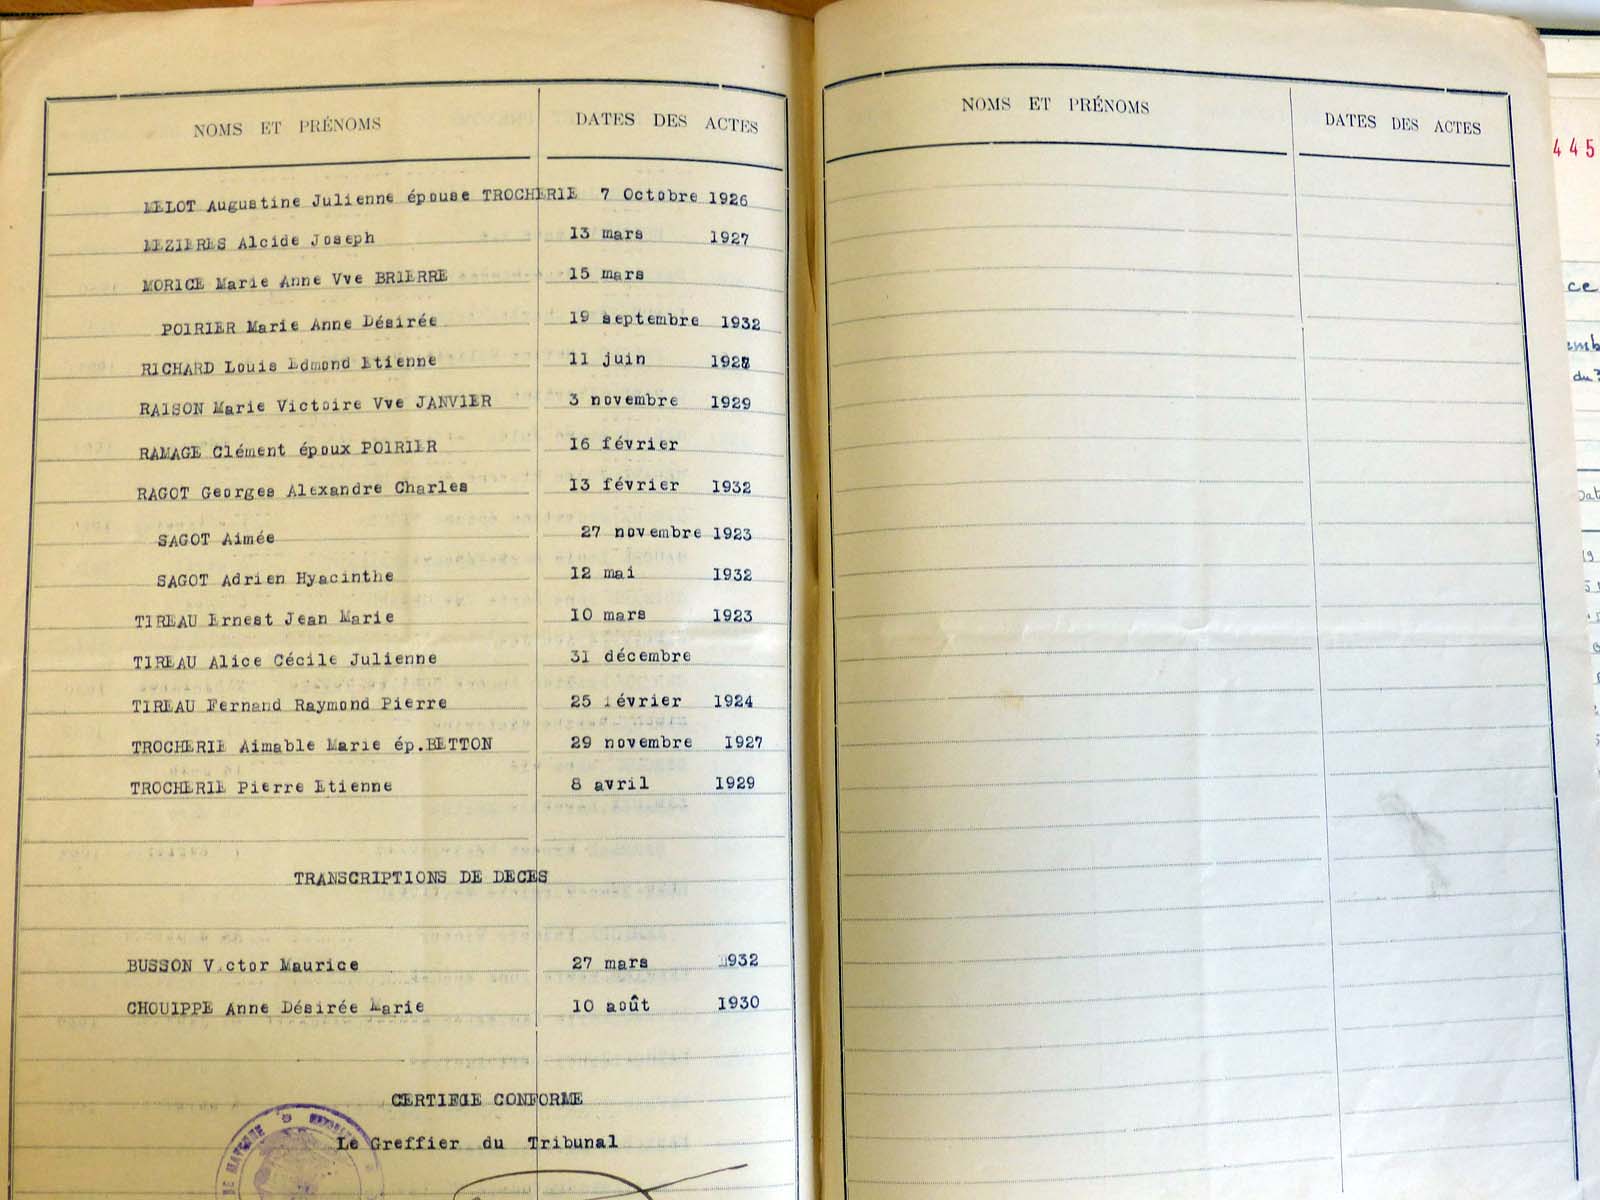 NOMS ET PRÉNOMS DATES DES ACTES
MELOT Augustine Julienne épouse TROCHERIE 7 Octobre 1926
MEZIERES Alcide Joseph 13 mars 1927
MORICE Marie Anne Vve BRIERRE 15 mars
POIRIER Marie Anne Désirée 19 septembre 1932
RICHARD Louis Edmond Etienne 11 juin
RAISON Marie Victoire Vve JANVIER 3 novembre 1929
RAMAGE Clément époux POIRIER 16 février
RAGOT Georges Alexandre Charles 13 février 1932
SAGOT Aimée 27 novembre 1923
SAGOT Adrien Hyacinthe 12 mai 1932
TIREAU Ernest Jean Marie 10 mars 1923
TIREAU Alice Cécile Julienne 31 décembre
TIREAU Fernand Raymond Pierre 25 février 1924
TROCHERIE Aimable Marie ép.BETTON 29 novembre 1927
TROCHERIE Pierre Etienne 8 avril 1929
TRANSCRIPTIONS DE DECES
BUSSON Victor Maurice 27 mars 1932
CHOUIPPE Anne Désirée Marie 10 août 1930
CERTIFIE CONFORME
Le Greffier du Tribunal
DE MAYENNE
NOMS ET PRÉNOMS DATES DES ACTES
445
ce
du